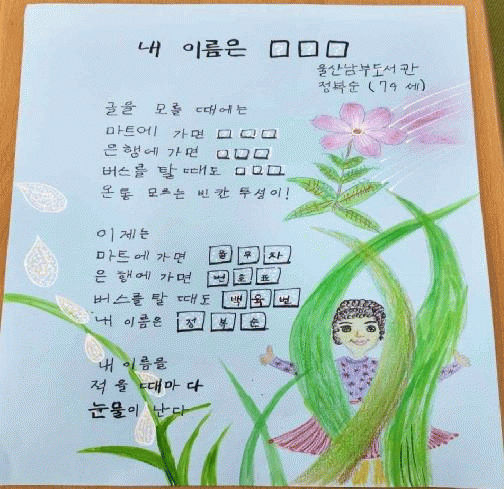 내 이름은 □□□
울산남부도서관
정복순 (79 세)
글을 모를 때에는
마트에 가면 □□□
은행에 가면 □□□
버스를 탈 때도 □□□
온통 모르는 빈칸 투성이!
이제는
마트에 가면 유무차
은행에 가면 번호표
버스를 탈 때도 백육번
내 이름은 정복순
내 이름을
적을 때마다
눈물이 난다